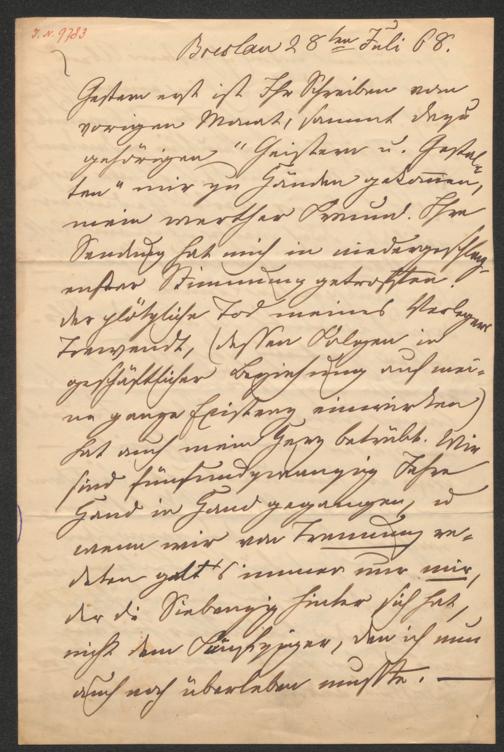 J. N. 9783
Breslau 28ten Juli 68.
Gestern erst ist Ihr Schreiben vom
vorigen Monat, sammt dazu
gehörigen "Geistern u. Gestal-
ten" mir zu Händen gekommen,
mein werther Freund. Ihre
Sendung hat mich in niedergeschlag-
enster Stimmung getroffen.
Der plötzliche Tod meines Verlegers
Trewendt, (dessen Folgen in
geschäftlicher Beziehung auf mei-
ne ganze Existenz einwirken)
hat auch mein Herz betrübt. Wir
sind fünfundzwanzig Jahre
Hand in Hand gegangen, u
wenn wir von Trennung re-
deten galt's immer nur mir,
der die Siebenzig hinter sich hat,
nicht dem Fünfziger, den ich nun
auch noch überleben musste. —